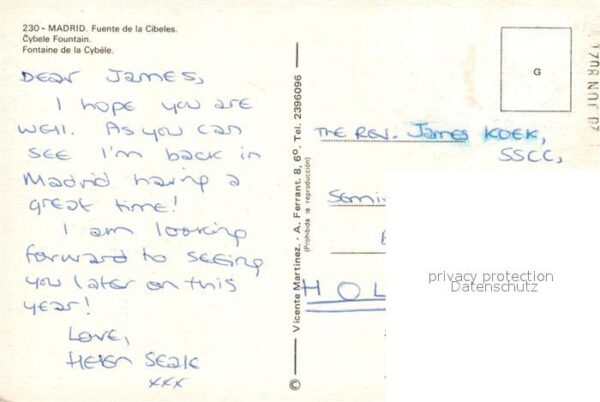 230 - MADRID. Fuente de la Cibeles.
Cybele Fountain.
Fontaine de la Cybéle.
Dear James,
I hope you are
well. As you can
see I'm back in
Madrid having a
great time!
I am looking
forward to seeing
you later on this
year!
Love,
Helen
xxx
© Vicente Martinez, - A. Ferrant. 8, 6°. Tel. 2396096
(Prohibida la reproducción)
G
The Rev. James KOEK,
SSCC,
Semi
HOL
privacy protection
Datenschutz